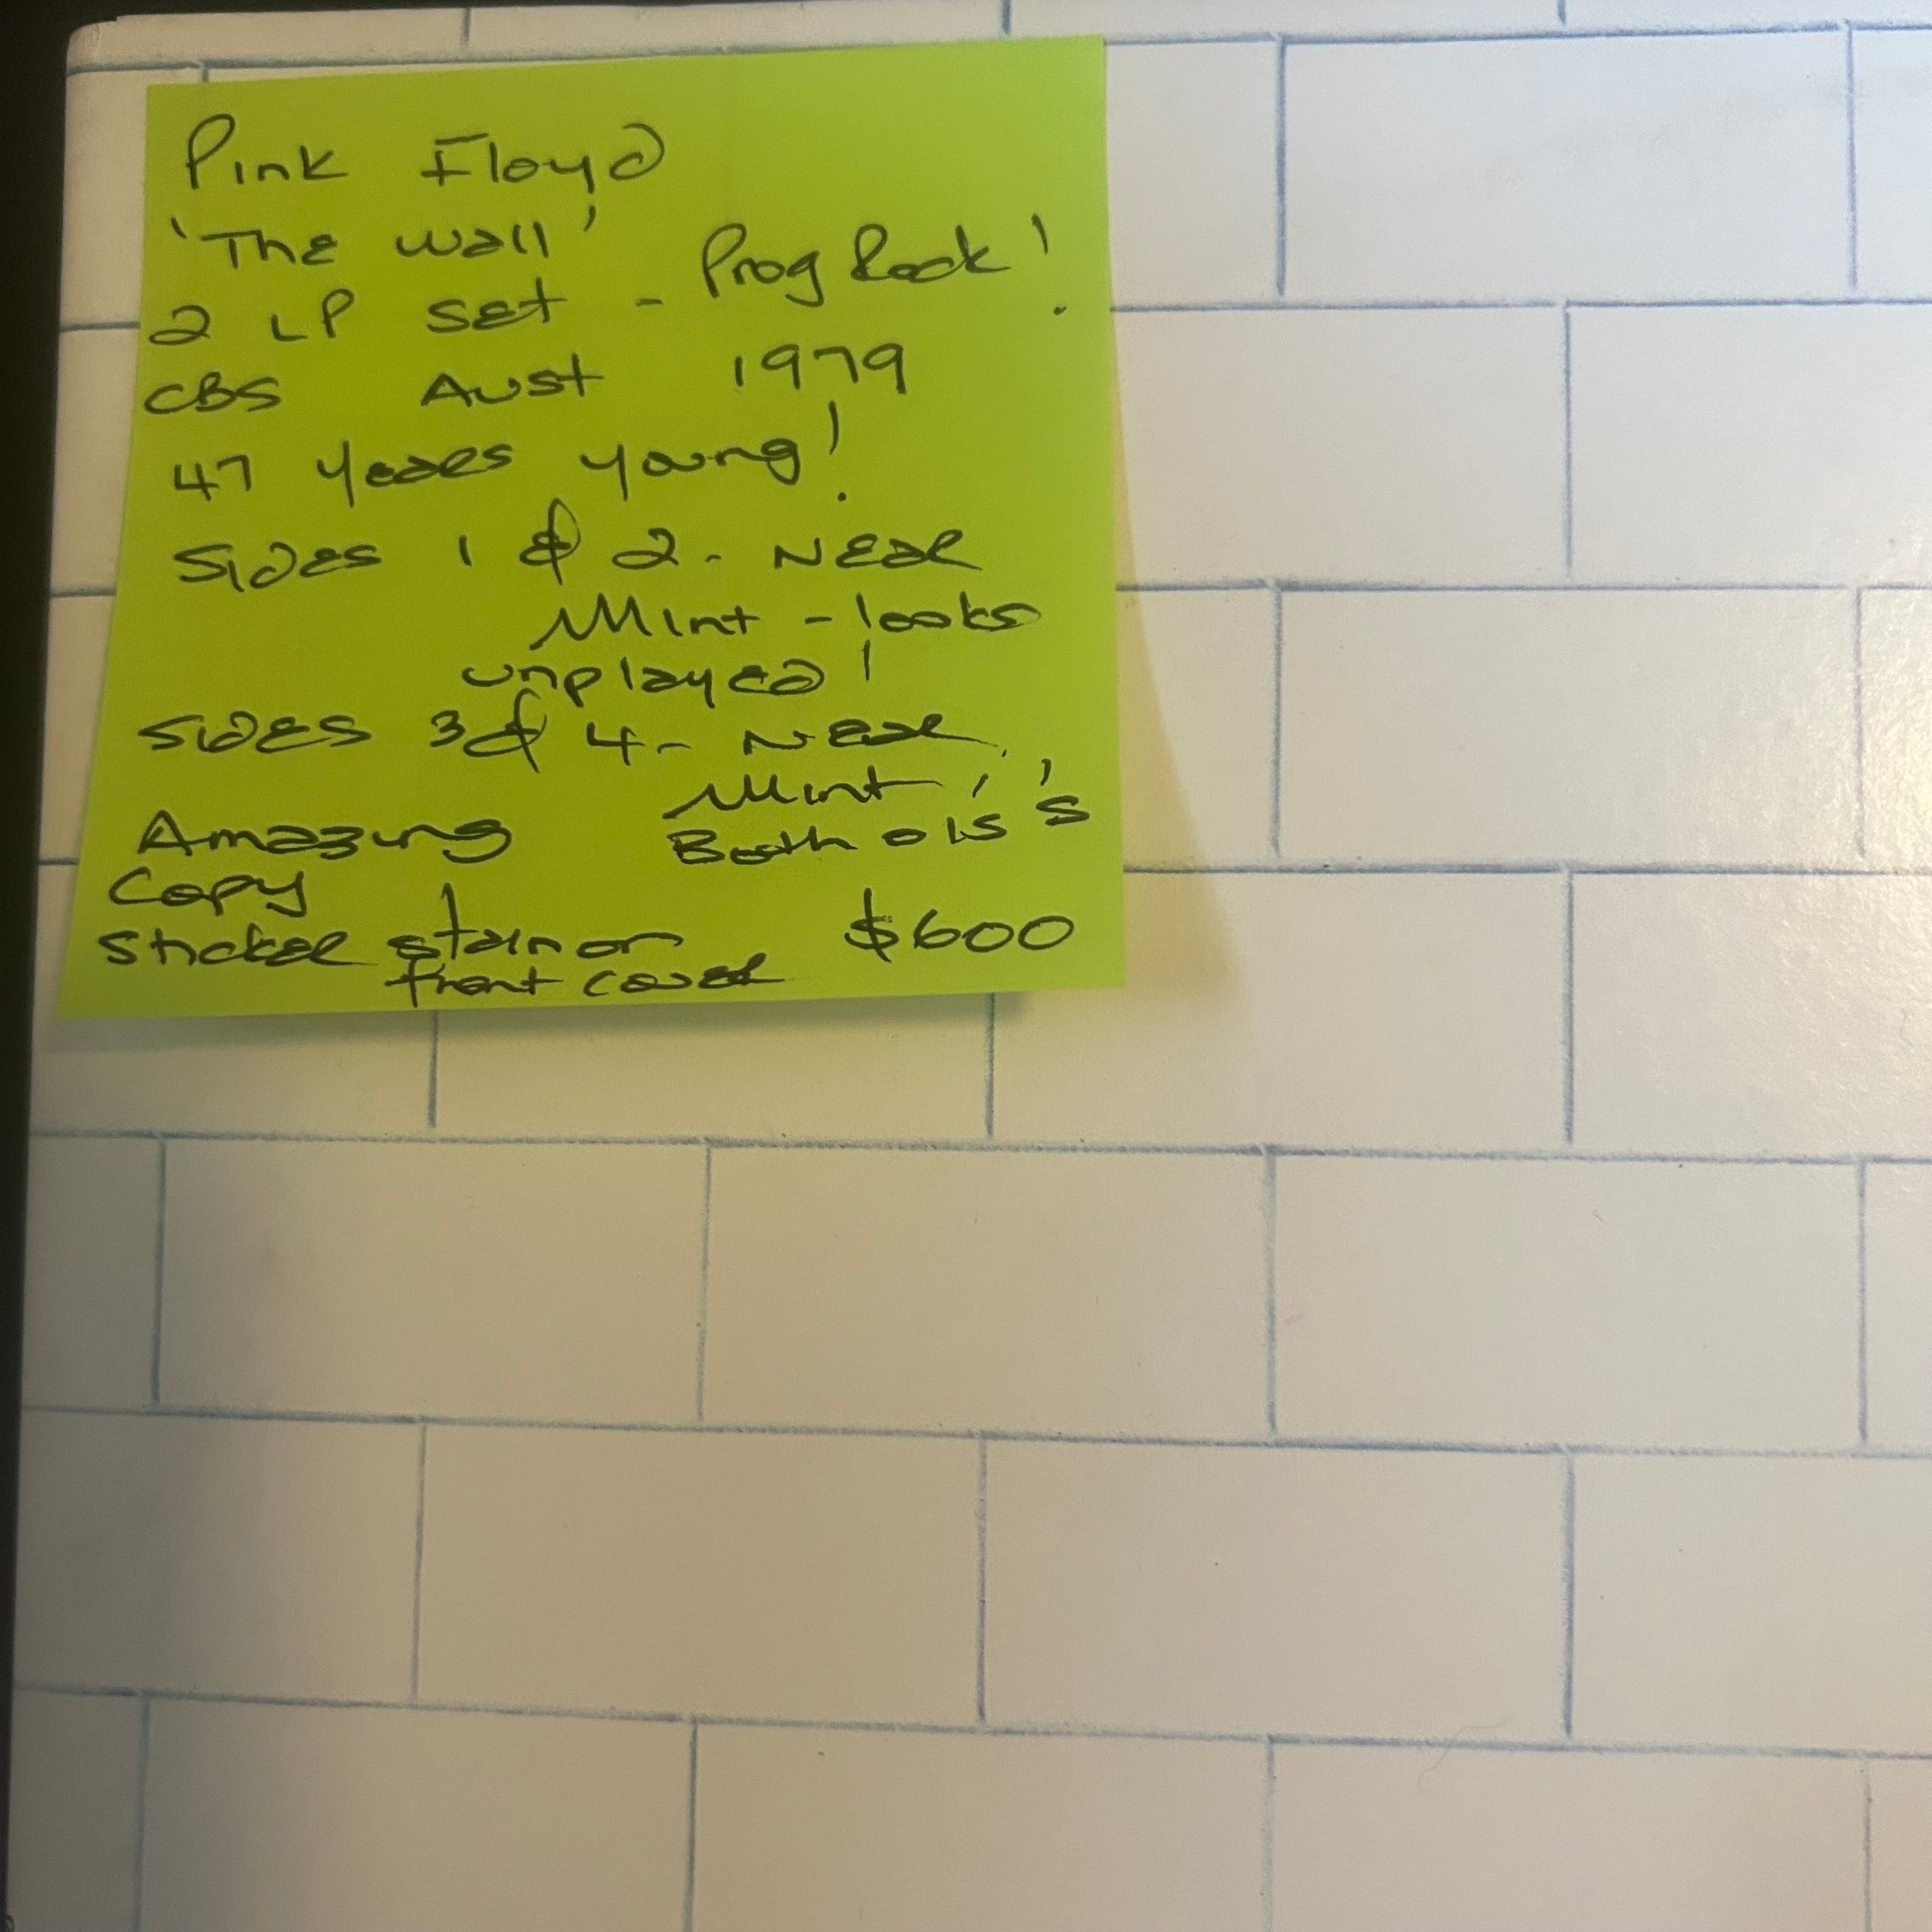 Pink Floyd
'The Wall'
2 LP set - Prog Rock!
CBS Aust 1979
47 years young!
Sides 1 & 2 - Near
Mint - looks
unplayed!
Sides 3 & 4 - Near
Mint!
Amazing Both OIS's
Copy!
Sticker stain on
front cover
$600